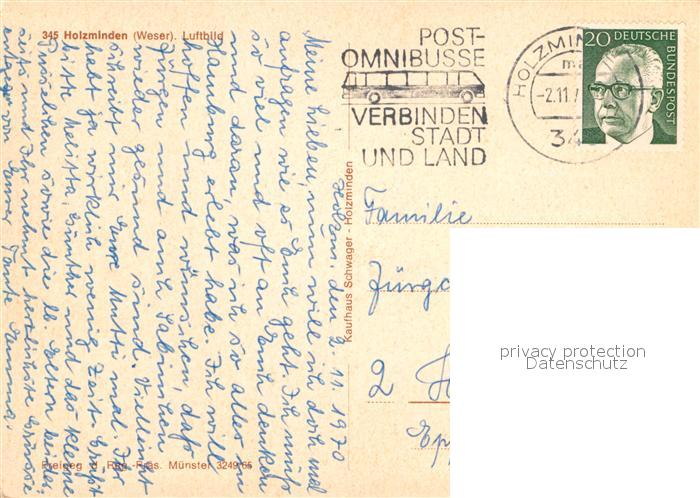 345 Holzminden (Weser). Luftbild
POST-
OMNIBUSSE
VERBINDEN
STADT
UND LAND
HOLZMIN
-2.11.7
34
20 DEUTSCHE
BUNDESPOST
Holzm. den 2. 11. 1970
Meine Lieben, nun will ich doch mal
anfragen wie es Euch geht. Ich muß
so viel und oft an Euch denken
und daran, was ich so alles in
Hamburg erlebt habe. Ich will
hoffen und wünschen, daß
Jürgen und auch Sabinchen
wieder gesund sind. Vielleicht
schreibt mir Eure Mutti mal. Ihr
habt ja wirklich wenig Zeit. Grüßt
bitte Melitta, Günther und das kleine
sowie die lb. Eltern beider-
seits und Ihr nehmt herzlichste Grüsse
entgegen von Eurer Tante Emma.
Kaufhaus Schwager - Holzminden
Familie
Jürge
2 H
Epp
Freigeg. d. Reg.-Präs. Münster 3249/65
privacy protection
Datenschutz